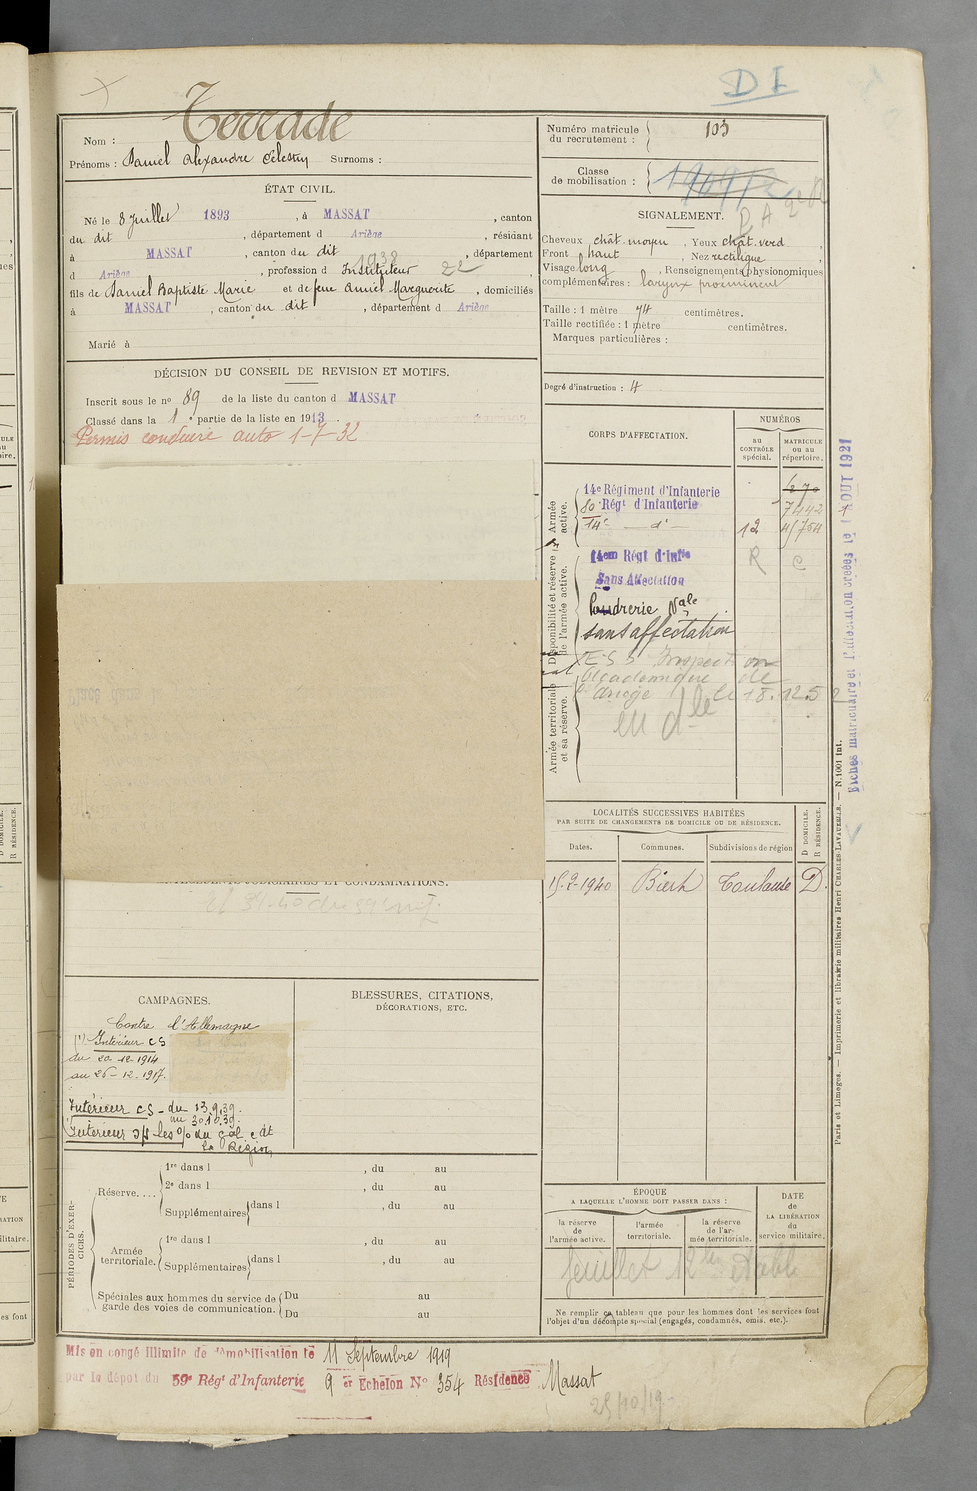 D I
Terrade
Nom :
Prénoms : Daniel Alexandre Célestin Surnoms :
ÉTAT CIVIL.
Né le 8 Juillet 1893, à MASSAT, canton
du dit, département d Ariège, résidant
à MASSAT, canton du dit, département
1938
d Ariège, profession d Instituteur
fils de Daniel Baptiste Marie et de feue Amiel Marguerite, domiciliés
à MASSAT, canton du dit, département d Ariège
Marié à
DÉCISION DU CONSEIL DE REVISION ET MOTIFS.
Inscrit sous le no 89 de la liste du canton d MASSAT
Classé dans la 1e partie de la liste en 1913.
Permis conduire auto 1-7-32
ANTÉCÉDENTS JUDICIAIRES ET CONDAMNATIONS.
CAMPAGNES.
Contre l'Allemagne
(1) Intérieur CS
du 20-12-1914
au 26-12-1917.
Intérieur CS - du 13.9.39.
au 30.10.39.
Intérieur
la Région
BLESSURES, CITATIONS,
DÉCORATIONS, ETC.
PÉRIODES D'EXERCICES.
Réserve....
1re dans l , du au
2e dans l , du au
Supplémentaires dans l , du au
Armée territoriale.
1re dans l , du au
Supplémentaires dans l , du au
Spéciales aux hommes du service de garde des voies de communication.
Du au
Du au
Numéro matricule du recrutement : 103
Classe de mobilisation :
SIGNALEMENT.
Cheveux chât. moyen, Yeux chât. verd
Front haut, Nez rectiligne
Visage long, Renseignements physionomiques
complémentaires : larynx proéminent
Taille : 1 mètre 74 centimètres.
Taille rectifiée : 1 mètre centimètres.
Marques particulières :
Degré d'instruction : 4
CORPS D'AFFECTATION.
NUMÉROS
au CONTRÔLE spécial.
MATRICULE ou au répertoire.
Armée active.
14e Régiment d'Infanterie
80e Régt d'Infanterie 7442
14e — d° — 12
Disponibilité et réserve de l'armée active.
14em Régt d'Infie R C
Sans Affectation
Poudrerie Nale
sans affectation
Armée territoriale et sa réserve.
Inspection
Académique de
l'Ariège le 18.12.52
Fiches matriculaire et d'affectation créées le 1 AOUT 1921
LOCALITÉS SUCCESSIVES HABITÉES
PAR SUITE DE CHANGEMENTS DE DOMICILE OU DE RÉSIDENCE.
Dates. Communes. Subdivisions de région D DOMICILE. R RÉSIDENCE.
15.2.1940 Biert Toulouse D.
ÉPOQUE
A LAQUELLE L'HOMME DOIT PASSER DANS :
la réserve de l'armée active.
l'armée territoriale.
la réserve de l'armée territoriale.
DATE de LA LIBÉRATION du service militaire.
Ne remplir ce tableau que pour les hommes dont les services font
l'objet d'un décompte spécial (engagés, condamnés, omis, etc.).
Paris et Limoges. — Imprimerie et librairie militaires Henri CHARLES-LAVAUZELLE. — N. 1001 int.
Mis en congé illimité de démobilisation le 11 Septembre 1919
par le dépot du 59e Régt d'Infanterie 9 er Echelon No 354 Résidence Massat
25/10/19